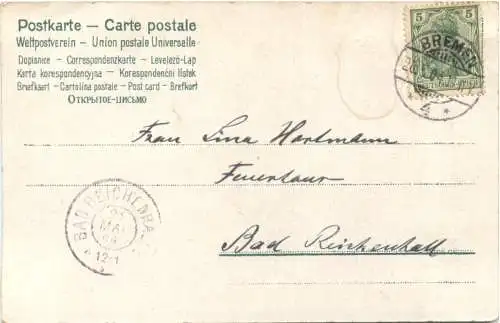 Postkarte – Carte postale
Weltpostverein – Union postale Universelle
Dopisnice – Correspondenzkarte – Levelező-Lap
Karta korespondencyjna – Korespondenční lístek
Brefkaart – Cartolina postale – Post card – Brefkort
Открытое-письмо
5 5
BREMEN
4 *
Frau Lina Hartmann
Bad Reichenhall
BAD REICHENHA
MAI